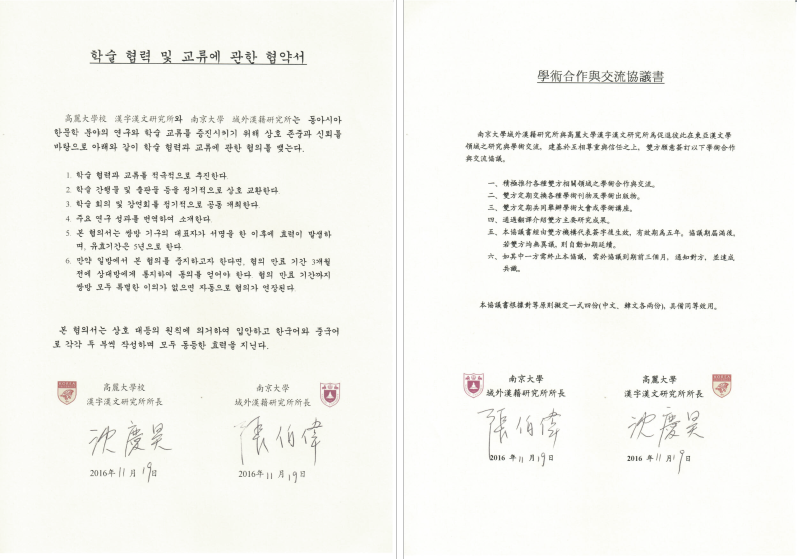 학술 협력 및 교류에 관한 협약서
高麗大學校 漢字漢文硏究所와 南京大學 域外漢籍硏究所는 동아시아
한문학 분야의 연구와 학술 교류를 증진시키기 위해 상호 존중과 신뢰를
바탕으로 아래와 같이 학술 협력과 교류에 관한 협의를 맺는다.
1. 학술 협력과 교류를 적극적으로 추진한다.
2. 학술 간행물 및 출판물 등을 정기적으로 상호 교환한다.
3. 학술 회의 및 강연회를 정기적으로 공동 개최한다.
4. 주요 연구 성과를 번역하여 소개한다.
5. 본 협의서는 쌍방 기구의 대표자가 서명을 한 이후에 효력이 발생하
며, 유효기간은 5년으로 한다.
6. 만약 일방에서 본 협의를 중지하고자 한다면, 협의 만료 기간 3개월
전에 상대방에게 통지하여 동의를 얻어야 한다. 협의 만료 기간까지
쌍방 모두 특별한 이의가 없으면 자동으로 협의가 연장된다.
본 협의서는 상호 대등의 원칙에 의거하여 입안하고 한국어와 중국어
로 각각 두 부씩 작성하며 모두 동등한 효력을 지닌다.
高麗大學校
漢字漢文硏究所所長
沈慶昊
2016年 11 月 19日
南京大學
域外漢籍硏究所所長
張伯偉
2016年 11 月 19日
學術合作與交流協議書
南京大學域外漢籍研究所與高麗大學漢字漢文研究所為促進彼此在東亞漢文學
領域之研究與學術交流，建基於互相尊重與信任之上，雙方願意簽訂以下學術合作
與交流協議。
一、積極推行各種雙方相關領域之學術合作與交流。
二、雙方定期交換各種學術刊物及學術出版物。
三、雙方定期共同舉辦學術大會或學術講座。
四、通過翻譯介紹雙方主要研究成果。
五、本協議書經由雙方機構代表簽字後生效，有效期為五年，協議期屆滿後，
若雙方均無異議，則自動如期延續。
六、如其中一方需終止本協議，需於協議到期前三個月，通知對方，並達成
共識。
本協議書根據對等原則擬定一式四份(中文、韓文各兩份)，具備同等效用。
南京大學
域外漢籍研究所所長
張伯偉
2016 年 11 月 19 日
高麗大學
漢字漢文研究所所長
沈慶昊
2016 年 11 月 19 日